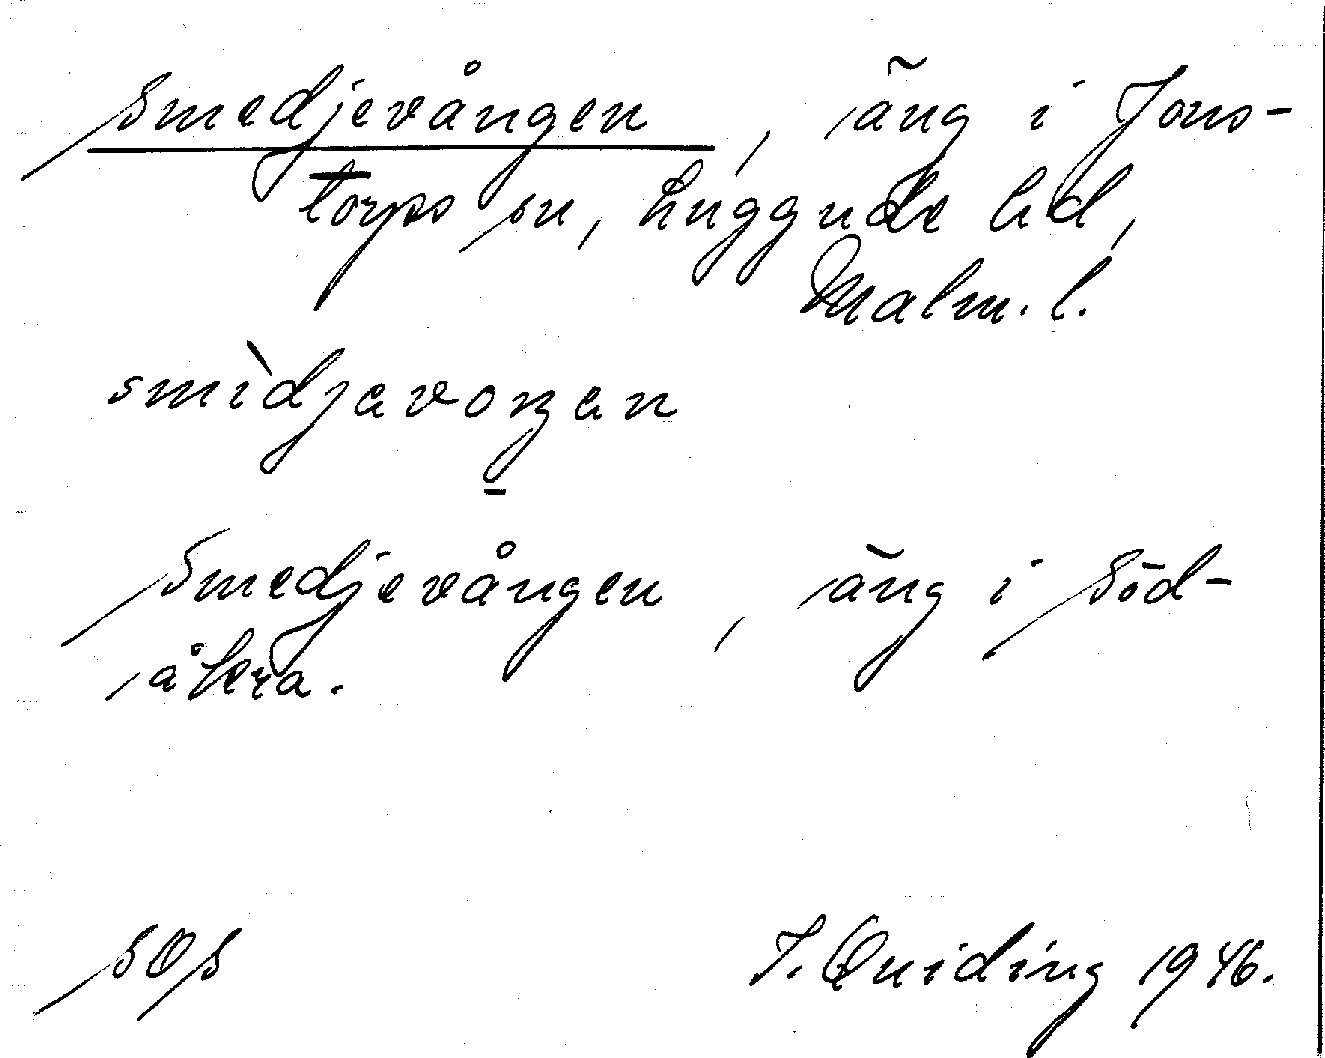 Smedjevången, äng i Jons-
torps sn, Luggude hd,
Malm. l.
smìdjavoŋan
Smedjevången, äng i Söd-
åkra.
SOS
J. Quiding 1946.